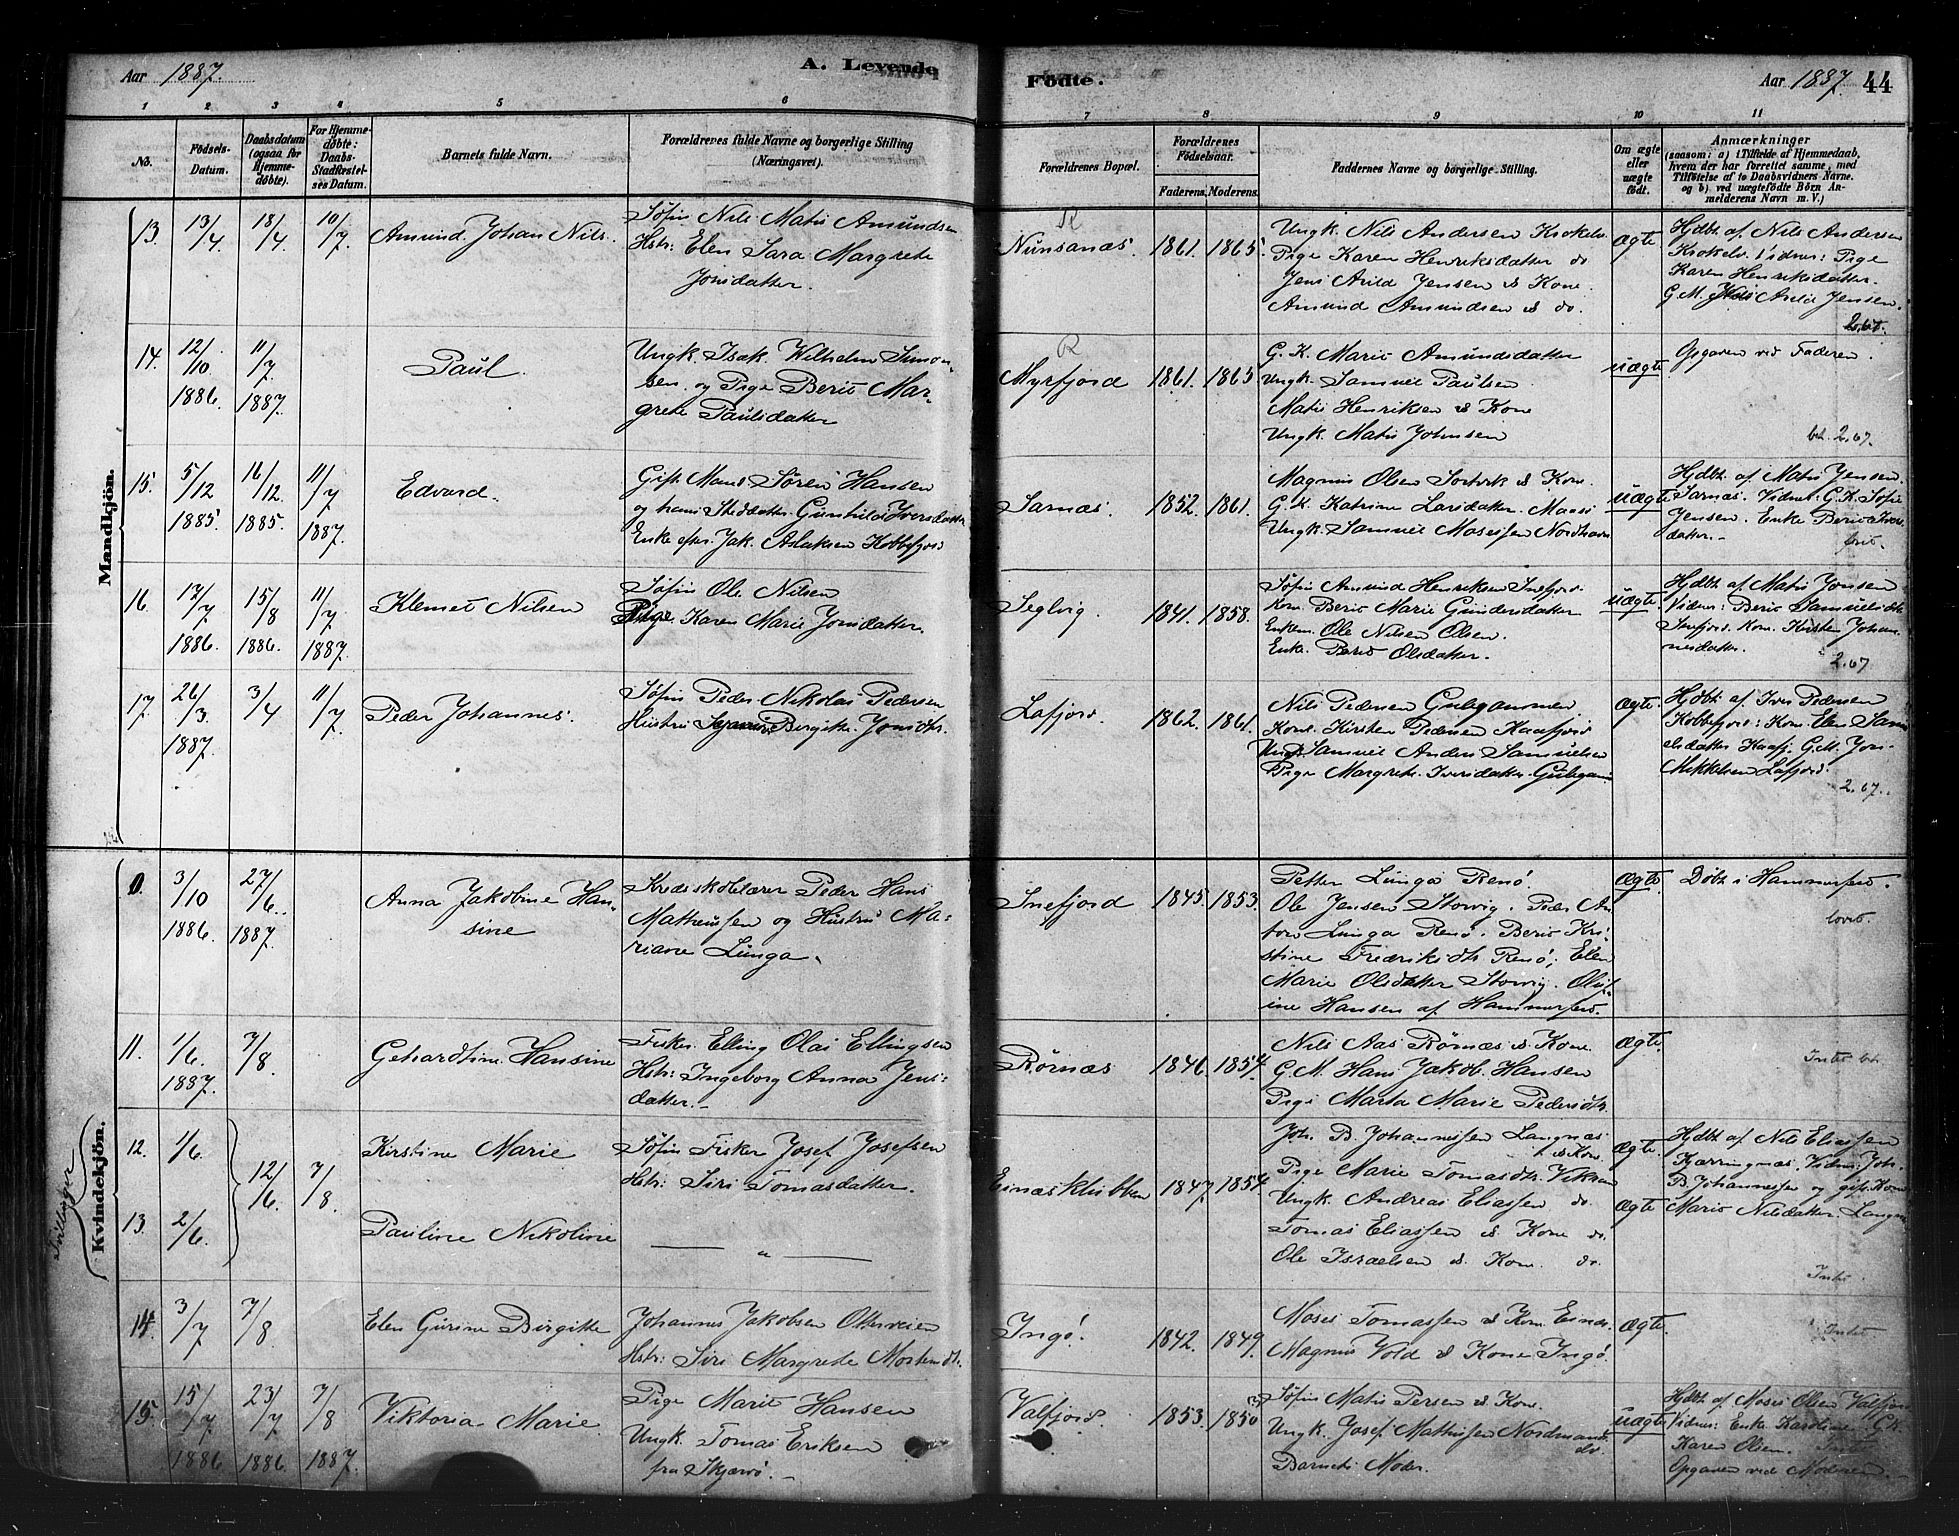 Aar 1887.
A. Levende
Födte.
Aar 1887. 44
1 2 3 4 5 6 7 8 9 10 11
No.
Fødsels-Datum.
Daabsdatum (ogsaa for Hjemmedøbte).
For Hjemmedøbte: Daabs-Stadfæstelses Datum.
Barnets fulde Navn.
Forældrenes fulde Navne og borgerlige Stilling (Næringsvei).
Forældrenes Bopæl.
Forældrenes Fødselsaar.
Faderens. Moderens.
Faddernes Navne og borgerlige Stilling.
Om ægte eller uægte født.
Anmærkninger
(saasom: a) i Tilfælde af Hjemmedaab,
hvem der har forrettet samme, med
Tilføielse af to Daabsvidners Navne.
og b) ved uægtefødte Børn Anmelderens Navn m. V.)
Mandkjön.
13. 13/4 18/4 10/7 Amund Johan Nils.
Søfin Nils Matis Amundsen
Hstr: Elen Sara Margrete
Jonsdatter.
R
Nunsanæs 1861. 1865.
Ungk. Nils Andersen Krokelv.
Pige Karen Henriksdatter do
Jens Arild Jensen & Kone.
Amund Amundsen & do.
Ægte
Hjdbt af Nils Andersen
Krokelv. Vidner: Pige
Karen Henriksdatter.
G.M. Arild Jensen.
2.67.
14. 12/10 1886. 11/7 1887. Paul.
Ungk. Isak Wilhelm Simonsen
og Pige Berit Margrete
Paulsdatter
R
Myrfjord 1861. 1865
G. K. Marit Amundsdatter
Ungk. Samuel Paulsen
Matis Henriksen & Kone
Ungk. Matis Johnsen
uægte
Opgaven ved Faderen.
bet. 2.67.
15. 5/12 1885 16/12 1885. 11/7 1887. Edvard.
Gift Mand Søren Hansen
og hans Steddatter Gunhild Iversdatter
Enke efter Jak. Aslaksen Kobbefjord
Sarnæs. 1852. 1861.
Magnus Olsen Sortvik & Kone.
G. K. Katrine Larsdatter Maasø
Ungk. Samuel Mosesen Nordhavn
uægte
Hjdbt. af Matis Jensen
Sarnæs. Vidner: G.K. Sofie
Jensen. Enke Berit Iversdatter.
16. 17/7 1886. 15/8 1886. 11/7 1887. Klemet Nilsen
Søfin Ole Nilsen
Pige Karen Marie Jonsdatter.
Seglvig. 1841. 1858.
Søfin Amund Henriksen Snefjord
Kone Berit Marie Gundersdatter
Enkem. Ole Nilsen Olsen.
Enke Berit Olsdatter.
uægte
Hjdbt. af Matis Jonsen
Vidner: Berit Samuelsdtr
Snefjord. Kone Kirsten Johannesdatter.
2.67
17. 26/3 1887. 3/4 11/7 Peder Johannes.
Søfin Peder Nikolai Pedersen
Hustru Bergitte Jonsdtr.
Lafjord. 1862. 1861.
Nils Pedersen Gulegammen
Kone Kirsten Pedersen Kaafjord
Ungk. Samuel Anders Samuelsen
Pige Margrete Iversdatter Gulegam
Ægte.
Hjdbt. af Iver Pedersen
Kobbefjord: Kone Elen Samuelsdatter
Kaafj. G.M. Jon
Mikkelsen Lafjord.
2.67.
Kvindekjön.
10. 3/10 1886. 27/6 1887. Anna Jakobine Hansine
Kredsskolelærer Peder Hans
Matheussen og Hustru Mariane
Lunga.
Snefjord 1845. 1853.
Petter Lunga Renø.
Ole Jensen Storvig. Peder Anton
Lunga Renø. Berit Kristine
Fredriksdtr. Renø; Elen
Marie Olsdatter Storvig. Olufine
Hansen af Hammerfest.
Ægte.
Døbt i Hammerfest.
11. 1/6 1887. 7/8 Gehardtine Hansine
Fisker Elling Olai Ellingsen
Hstr: Ingeborg Anna Jensdatter.
Rørnæs 1846. 1854.
Nils Aas Rørnæs & Kone
G.M. Hans Jakob Hansen
Pige Marta Marie Pedersdtr.
Ægte.
Intet bet.
Tvillinger
12. 1/6 12/6 7/8 Kirstine Marie
Søfin Fisker Josef Josefsen
Hstr: Siri Tomasdatter.
Einæsklubben 1847. 1854.
Joh. B. Johannessen Langnæs
& Kone
Pige Marie Tomasdtr.
Ungk. Andreas Eliassen do.
Tomas Eliassen & Kone do
Ole Israelsen & Kone. do.
Ægte.
Hjdbt af Nils Eliassen
Kjærringnæs. Vidner: Joh.
B. Johannessen og gift Kone
Marit Nilsdatter Langnæs
Intet.
13. 2/6 Pauline Nikoline
— „ —
Ægte
14. 3/7 7/8 Elen Gurine Birgitte
Johannes Jakobsen
Hstr: Siri Margrete Mortensdtr.
Ingø. 1842. 1849.
Moses Tomassen & Kone
Magnus Vold & Kone Ingø.
Ægte.
Intet
15. 15/7 1886 23/7 1886. 7/8 1887. Viktoria Marie
Pige Marit Hansen
Ungk. Tomas Eriksen
fra Skjærvø.
Valfjord. 1853. 1850
Søfin Matis Persen & Kone.
Ungk. Josef Mathisen Nordmand
do.
Barnets Moder.
uægte
Hjdbt af Moses Olsen Valfjord
Vidner: Enke Karoline G.K.
Karen Olsen. Intet
Opgaven ved Moderen.